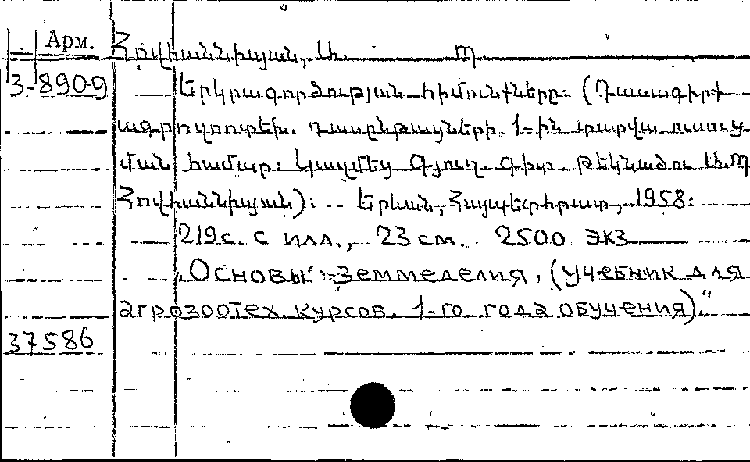 Арм. Հովհաննիսյան, Ս. Պ.
3-8909 Երկրագործության հիմունքները. (Դասագիրք
ագրոզոոտեխ. դասընթացների 1-ին տարվա ուսուց
ման համար: Կազմեց Գյուղ. գիտ. թեկնածու Ս.Պ
Հովհաննիսյան): Երևան, Հայպետհրատ, 1958:
219 с. с илл., 23 см. 2500 экз
„Основы земледелия, (учебник для
агрозоотех курсов. 1-го года обучения)."
37586